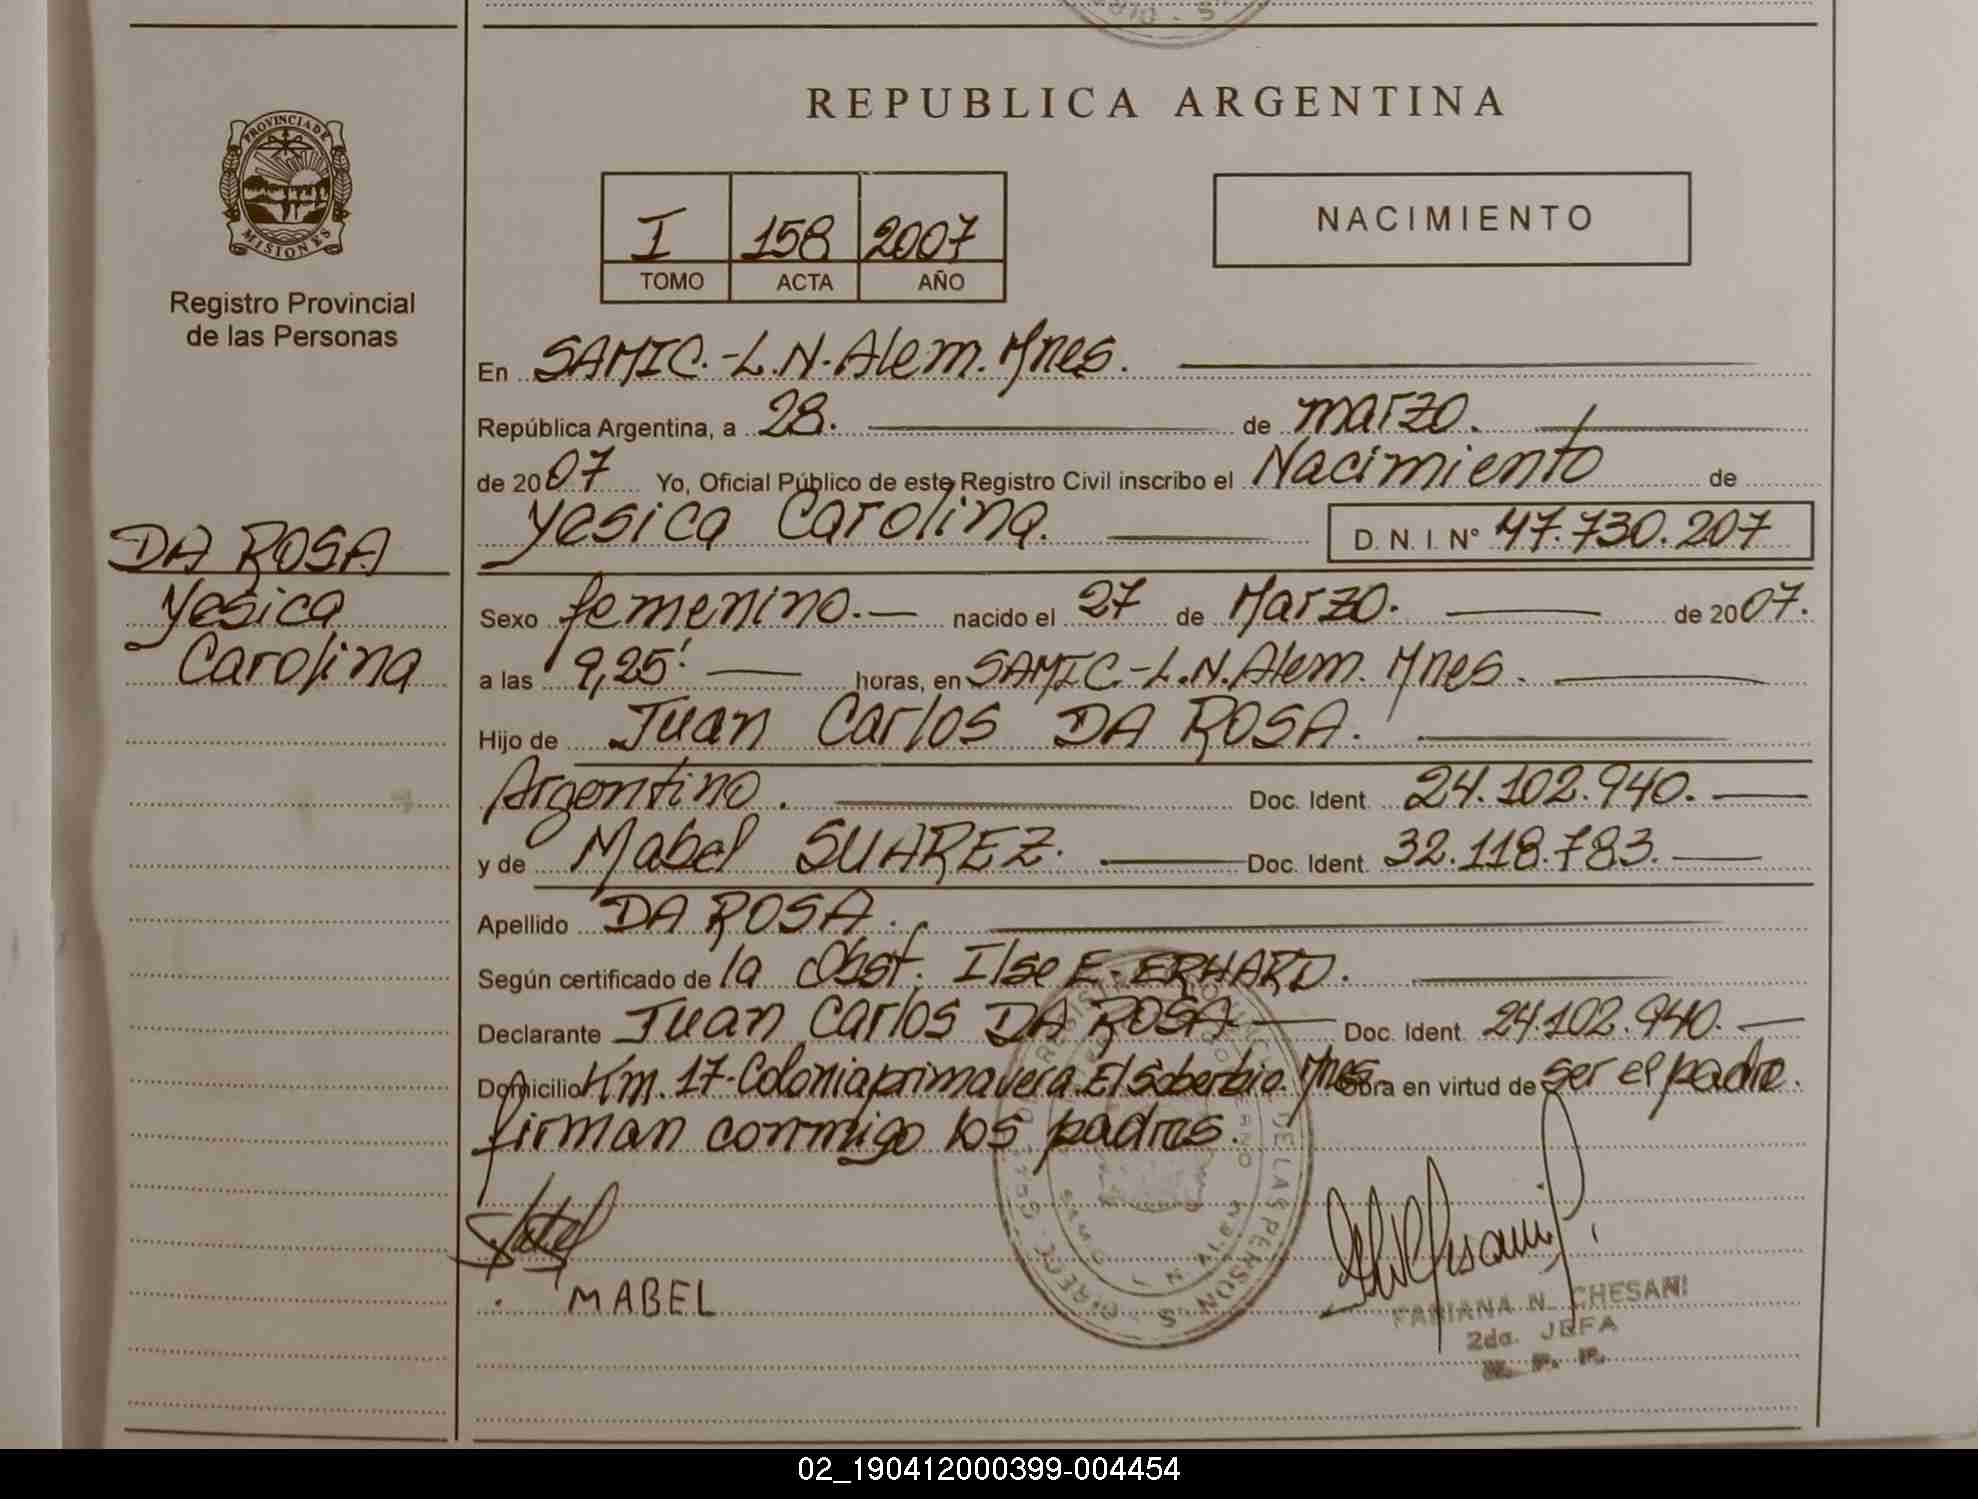 REPUBLICA ARGENTINA
PROVINCIA DE
MISIONES
Registro Provincial
de las Personas
I 158 2007
TOMO ACTA AÑO
NACIMIENTO
En SAMIC.-L.N.Alem.Mnes.
República Argentina, a 28. de marzo.
de 2007 Yo, Oficial Público de este Registro Civil inscribo el Nacimiento de
Yesica Carolina. D.N.I. Nº 47.730.207
DA ROSA
Yesica
Carolina
Sexo femenino. nacido el 27 de Marzo. de 2007.
a las 9,25' horas, en SAMIC.-L.N.Alem. Mnes.
Hijo de Juan Carlos DA ROSA.
Argentino. Doc. Ident. 24.102.940.
y de Mabel SUAREZ. Doc. Ident. 32.118.783.
Apellido DA ROSA.
Según certificado de la Obst. Ilse E. ERHARD.
Declarante Juan Carlos DA ROSA Doc. Ident. 24.102.940.
Domicilio Km. 17-Colonia primavera. El Soberbio. Mnes. Obra en virtud de ser el padre.
firman conmigo los padres.
MABEL
FABIANA N. CHESANI
2da. JEFA
R. P. P.
02_190412000399-004454